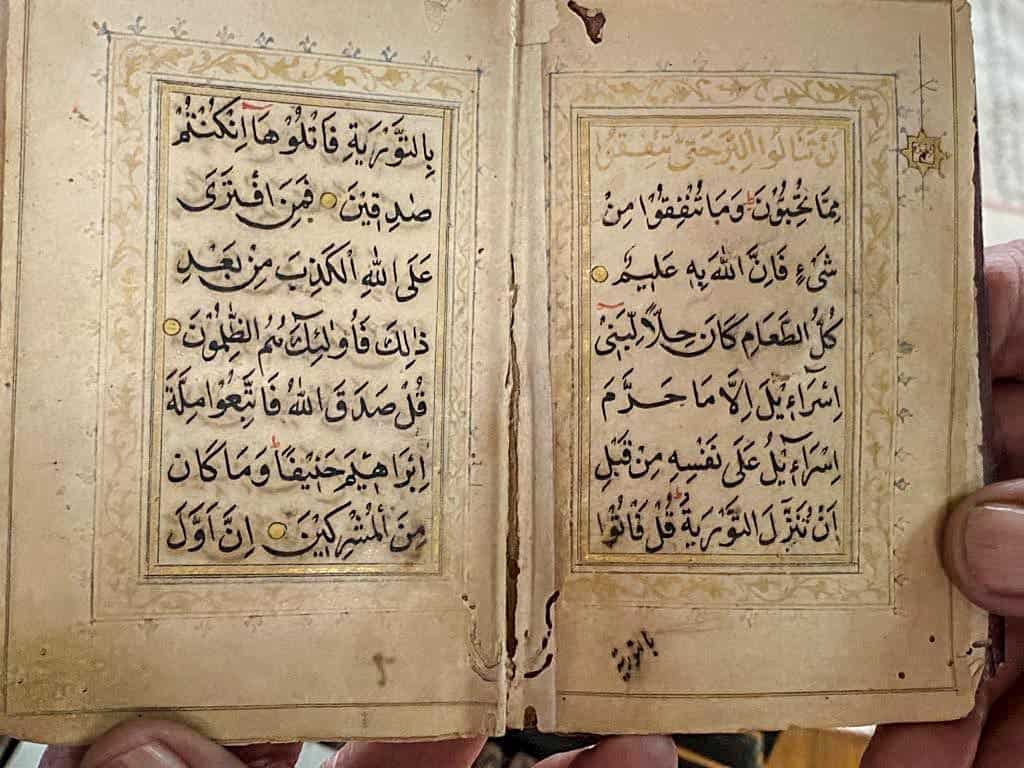 لَنْ تَنَالُوا الْبِرَّ حَتّٰى تُنْفِقُوْا
مِمَّا تُحِبُّوْنَ وَمَا تُنْفِقُوْا مِنْ
شَیْءٍ فَاِنَّ اللّٰهَ بِهٖ عَلِيْمٌ
كُلُّ الطَّعَامِ كَانَ حِلًّا لِّبَنِیْٓ
اِسْرَآءِيْلَ اِلَّا مَا حَرَّمَ
اِسْرَآءِيْلُ عَلٰى نَفْسِهٖ مِنْ قَبْلِ
اَنْ تُنَزَّلَ التَّوْرٰيةُ قُلْ فَاْتُوْا
بالتورية
بِالتَّوْرٰيةِ فَاتْلُوْهَآ اِنْ كُنْتُمْ
صٰدِقِيْنَ فَمَنِ افْتَرٰى
عَلَى اللّٰهِ الْكَذِبَ مِنْ بَعْدِ
ذٰلِكَ فَاُولٰٓئِكَ هُمُ الظّٰلِمُوْنَ
قُلْ صَدَقَ اللّٰهُ فَاتَّبِعُوْا مِلَّةَ
اِبْرَاهِيْمَ حَنِيْفًا وَمَا كَانَ
مِنَ الْمُشْرِكِيْنَ اِنَّ اَوَّلَ